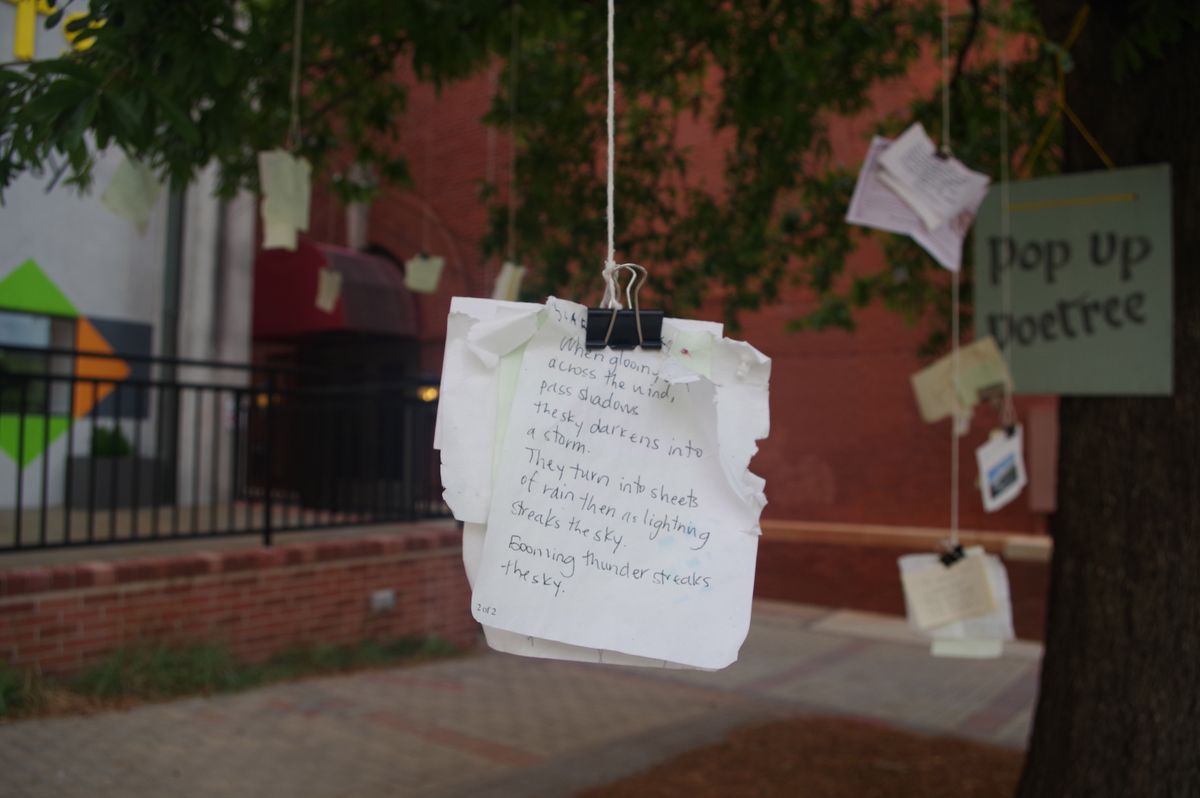 When gloomy
across the wind,
pass shadows
the sky darkens into
a storm.
They turn into sheets
of rain then as lightning
streaks the sky.
Booming thunder streaks
the sky.
2 of 2
Pop Up
Poetree